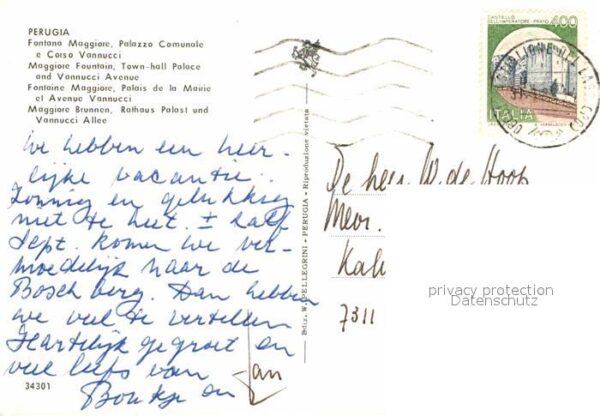 PERUGIA
Fontana Maggiore, Palazzo Comunale
e Corso Vannucci
Maggiore Fountain, Town-hall Palace
and Vannucci Avenue
Fontaine Maggiore, Palais de la Mairie
et Avenue Vannucci
Maggiore Brunnen, Rathaus Palast und
Vannucci Allee
We hebben een heer-
lijke vacantie.
Zonnig en gelukkig
niet te heet. ± half
Sept. komen we ver-
moedelijk naar de
Boschberg. Dan hebben
we veel te vertellen
Hartelijk gegroet en
veel liefs van
Boukje en Jan
34301
Ediz. W. PELLEGRINI - PERUGIA - Riproduzione vietata
CASTELLO
DELL'IMPERATORE - PRATO
400
ITALIA
CASTIGLIONE DEL LAGO (PG)
De heer W. de Hoop
Mevr.
Kal
7311
privacy protection
Datenschutz